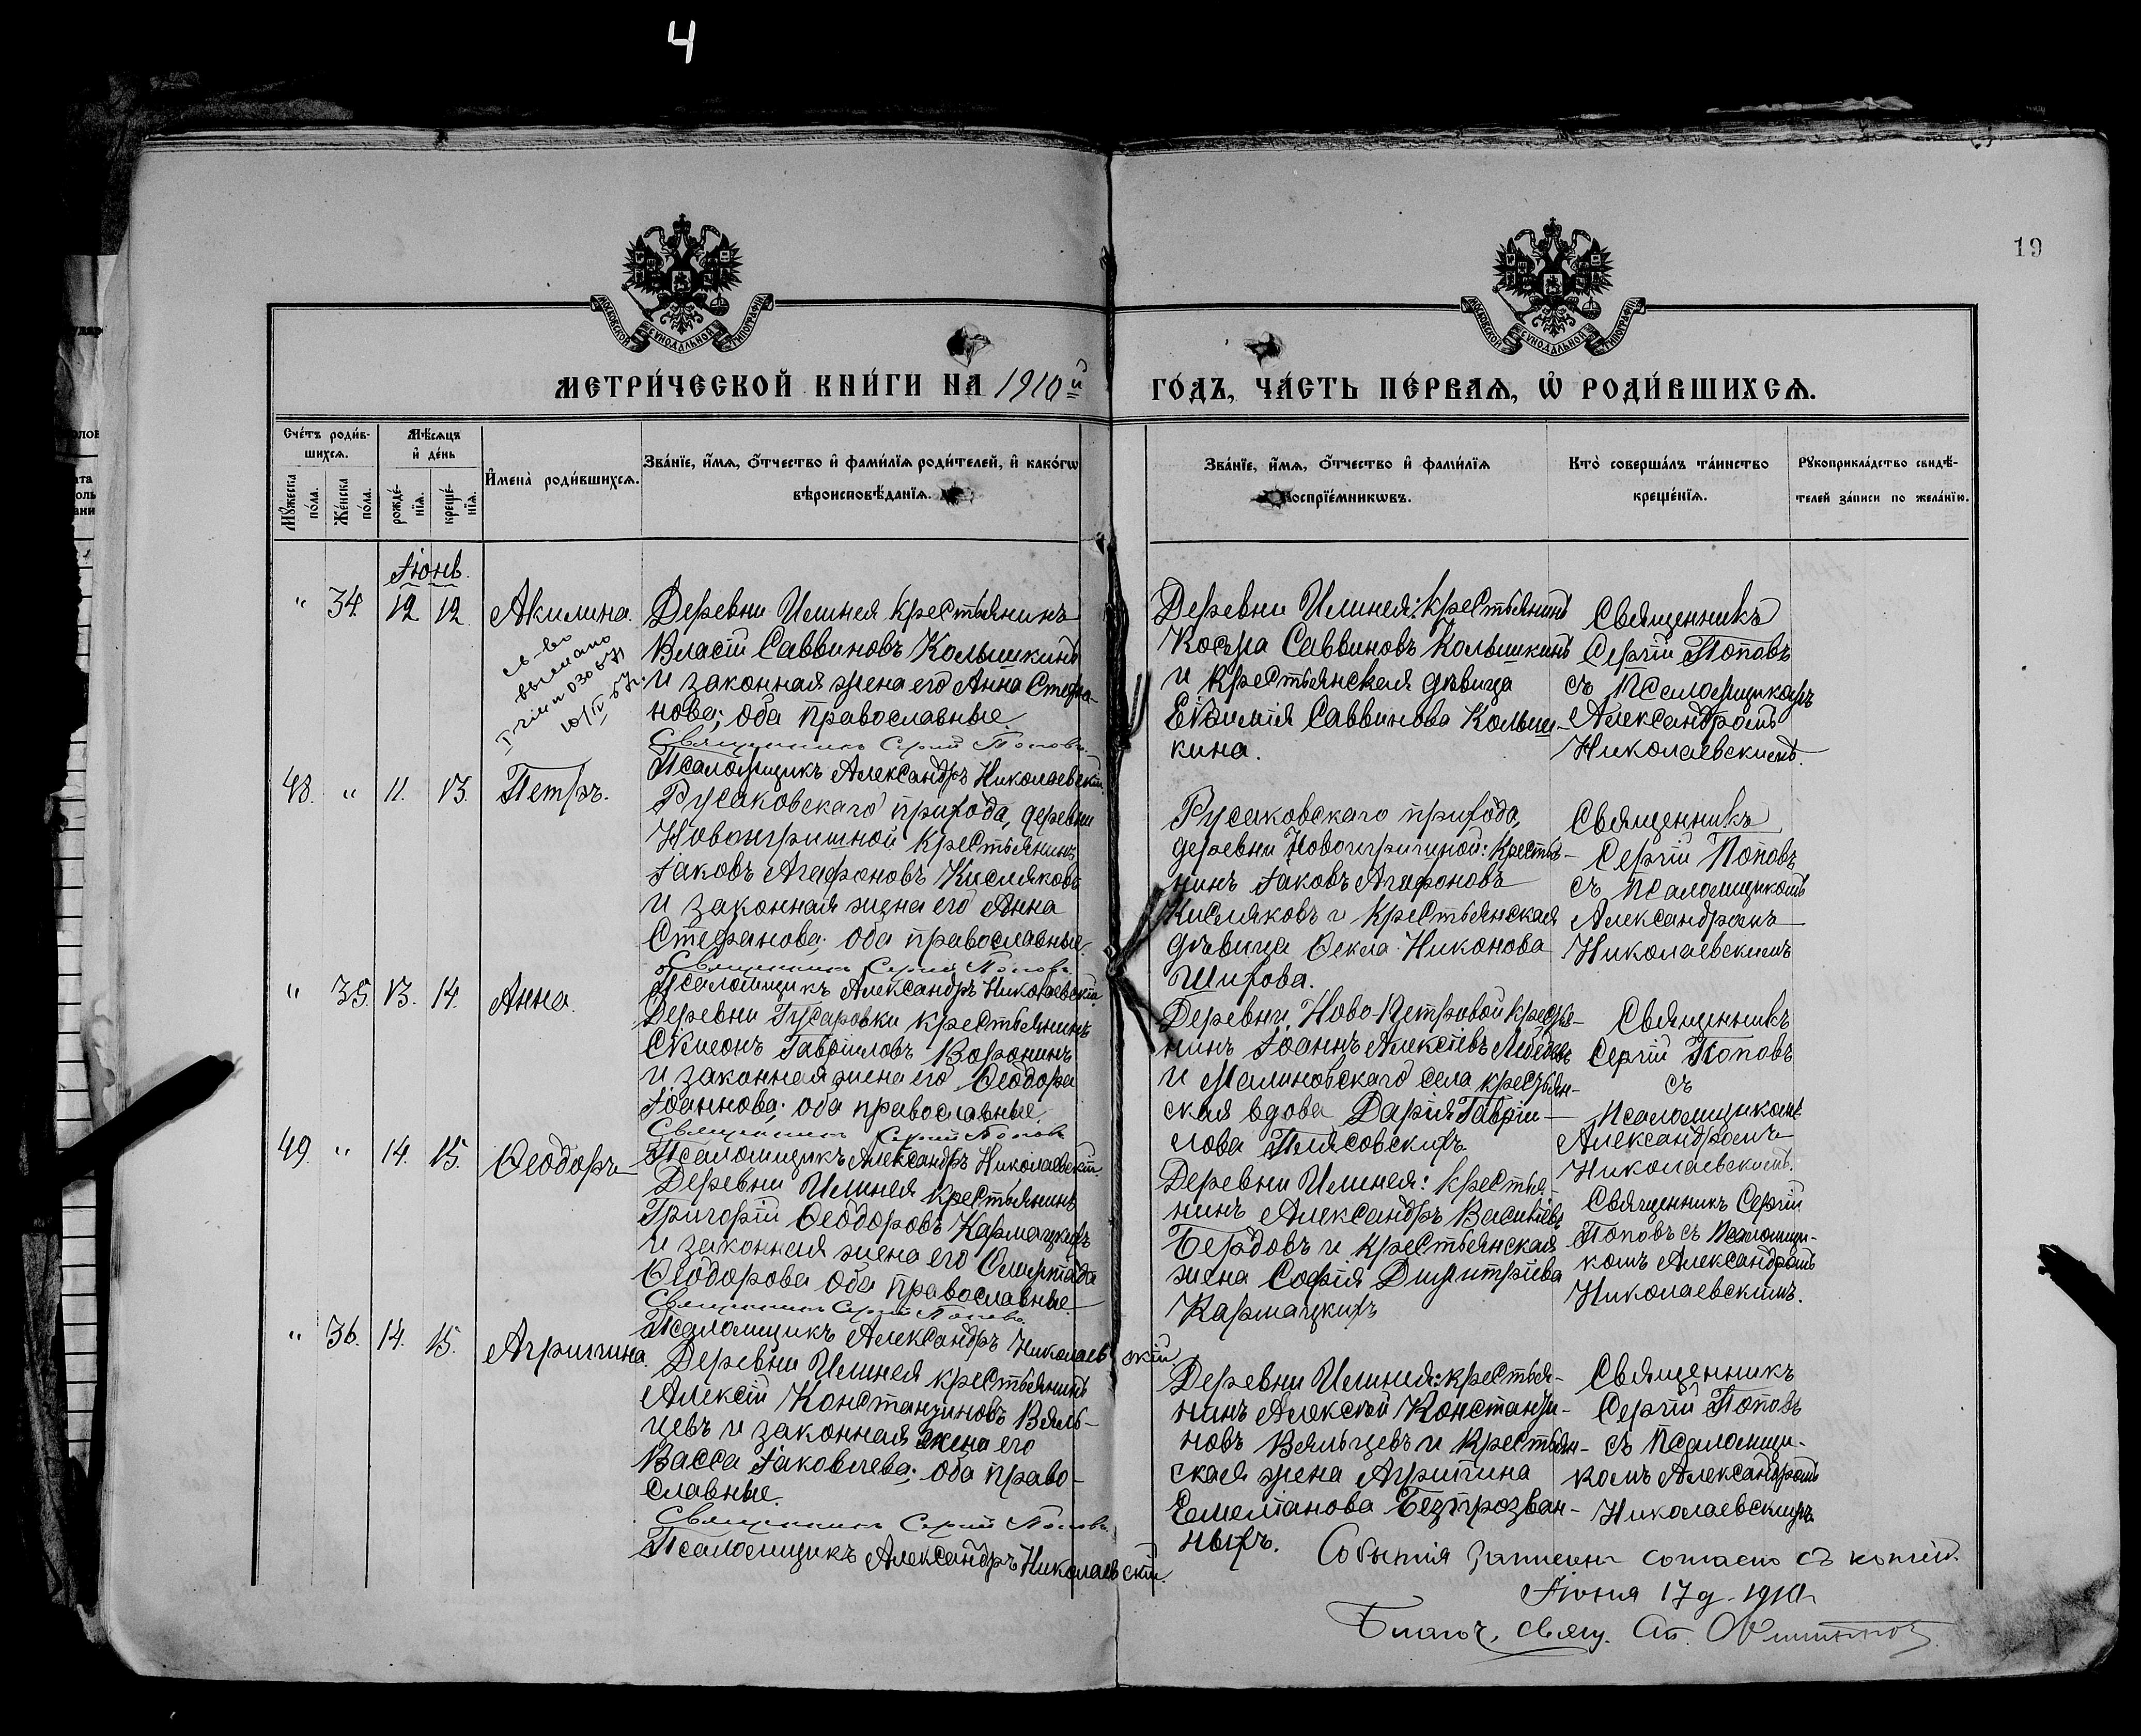 4
19
МОСКОВСКОЙ СѴНОДАЛЬНОЙ ТИПОГРАФІИ
МОСКОВСКОЙ СѴНОДАЛЬНОЙ ТИПОГРАФІИ
МЕТРИ́ЧЕСКОЙ КНИ́ГИ НА 1910й ГО́ДЪ, ЧА́СТЬ ПЕ́РВАѦ, Ѡ РОДИ́ВШИХСѦ.
Сче́тъ роди́в-
шихсѧ.
Мꙋжеска по́ла.
Же́нска по́ла.
Мѣ́сѧцъ
и҆ де́нь
рожде́-
нїѧ.
креще́-
нїѧ.
И҆мена̀ роди́вшихсѧ.
Зва́нїе, и҆́мѧ, ѻ҆́тчество и҆ фами́лїѧ роди́телей, и҆ како́гѡ
вѣроисповѣ́данїѧ.
Зва́нїе, и҆́мѧ, ѻ҆́тчество и҆ фами́лїѧ
воспрїе́мникѡвъ.
Кто̀ соверша́лъ та́инство
креще́нїѧ.
Рꙋкоприкла́дство свидѣ́-
телей за́писи по жела́нїю.
Іюнь.
" 34. 12 12. Акилина.
св-во
выслано
10/IV-57г.
Деревни Илинея крестьянинъ
Власій Саввиновъ Колышкинъ
и законная жена его Анна Стефа-
нова; оба православные.
Священникъ Сергій Поповъ.
Псаломщикъ Александръ Николаевскій.
Деревни Илинея: крестьянинъ
Косьма Саввиновъ Колышкинъ
и крестьянская дѣвица
Евѳимія Саввинова Колыш-
кина.
Священникъ
Сергій Поповъ
съ псаломщикомъ
Александромъ
Николаевскимъ.
48. " 11. 13. Петръ.
Русаковскаго прихода, деревни
Новоигришной крестьянинъ
Іаковъ Агафоновъ Кисляковъ
и законная жена его Анна
Стефанова; оба православные.
Священникъ Сергій Поповъ
Псаломщикъ Александръ Николаевскій.
Русаковскаго прихода,
деревни Новоигришной: кресть-
нинъ Іаковъ Агафоновъ
Кисляковъ и крестьянская
дѣвица Ѳекла Никонова
Шихова.
Священникъ
Сергій Поповъ
съ псаломщикомъ
Александромъ
Николаевскимъ
" 35. 13. 14. Анна.
Деревни Гусаровки крестьянинъ
Сѵмеонъ Гавріиловъ Воронинъ
и законная жена его Ѳеодора
Іоаннова; оба православные.
Священникъ Сергій Поповъ
Псаломщикъ Александръ Николаевскій.
Деревни Ново-Петровой крестья-
нинъ Іоаннъ Алексіевъ Лебедевъ
и Малиновскаго села крестьян-
ская вдова Дарія Гавріи-
лова Плясовскихъ.
Священникъ
Сергій Поповъ
съ
псаломщикомъ
Александромъ
Николаевскимъ.
49. " 14. 15. Ѳеодоръ
Деревни Илинея крестьянинъ
Григорій Ѳеодоровъ Кармацкихъ
и законная жена его
Ѳеодорова оба православные.
Священникъ Сергій Поповъ.
Псаломщикъ Александръ Николаевскій.
Деревни Илинея: крестья-
нинъ Александръ Васильевъ
Бердовъ и крестьянская
жена Софія Димитріева
Кармацкихъ
Священникъ Сергій
Поповъ съ псаломщи-
комъ Александромъ
Николаевскимъ.
" 36. 14. 15. Агриппина.
Деревни Илинея крестьянинъ
Алексій Константиновъ Вяль-
цевъ и законная жена его
Васса Іаковлева; оба право-
славные.
Священникъ Сергій Поповъ
Псаломщикъ Александръ Николаевскій.
Деревни Илинея: крестья-
нинъ Алексій Константи-
новъ Вяльцевъ и крестьян-
ская жена Агрипина
Емелианова Безпрозван-
ныхъ.
Священникъ
Сергій Поповъ
съ псаломщи-
комъ Александромъ
Николаевскимъ.
Событія записаны согласно съ копіей.
Іюня 17 д. 1910 г.
Благоч. свящ.